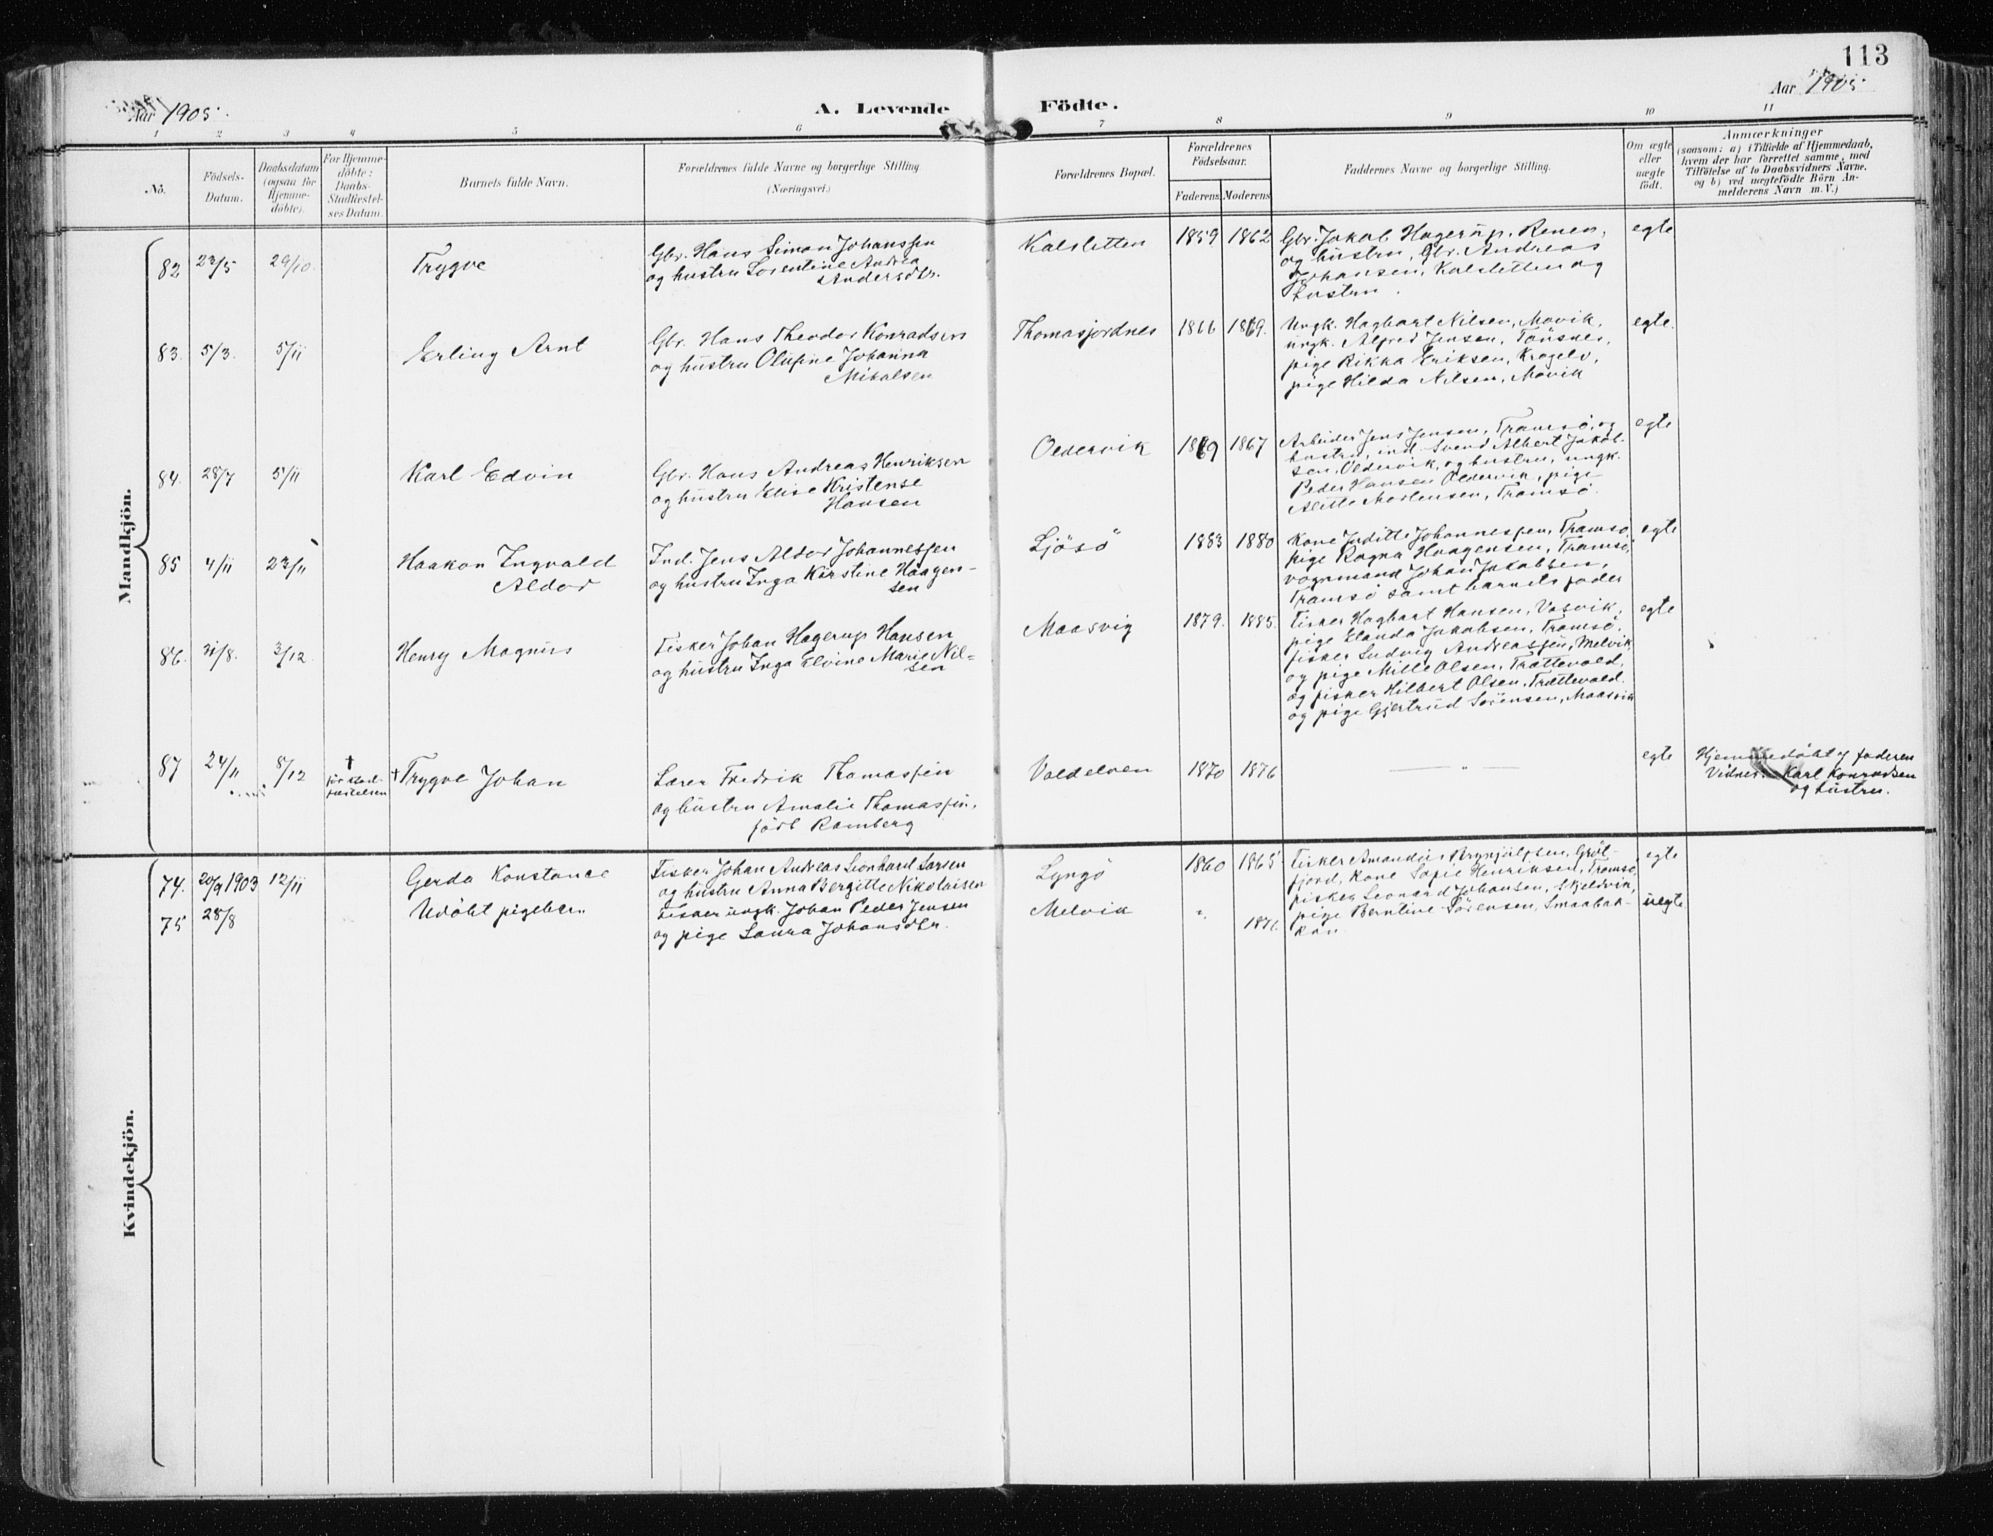 113
Aar 1905.
A. Levende
Födte.
Aar 1905
1 2 3 4 5 6 7 8 9 10 11
No.
Födsels-
Datum.
Daabsdatum
(ogsaa for
Hjemme-
döbte).
For Hjemme-
döbte:
Daabs-
Stadfæstel-
ses Datum.
Barnets fulde Navn.
Forældrenes fulde Navne og borgerlige Stilling
(Næringsvei.)
Forældrenes Bopæl.
Forældrenes
Födselsaar.
Faderens. Moderens.
Faddernes Navne og borgerlige Stilling.
Om ægte
eller
uægte
födt.
Anmærkninger
(saasom: a) i Tilfælde af Hjemmedaab,
hvem der har forrettet samme, med
Tilföielse af to Daabsvidners Navne.
og b) ved uægtefödte Börn An-
melderens Navn m. V.)
Mandkjön.
82 23/5 29/10. Trygve
Gbr. Hans Simon Johanssen
og hustru Lorentine Andrea
Andersdtr.
Kalsletten 1859 1862
Gbr. Jakob Hagerup, Renen,
og hustru, Gbr. Andreas
Johansen, Kalsletten og
hustru.
egte
83. 5/3. 5/11 Erling Arnt
Gbr. Hans Theodor Konradsen
og hustru Olufine Johanna
Mikalsen
Thomasjordnes 1866 1869.
Ungk. Hagbart Nilsen, Movik,
ungk. Alfred Jensen, Tönsnes,
pige Rikka Eriksen, Kragelv,
pige Hilda Nilsen, Movik
egte.
84. 28/7 5/11 Karl Edvin
Gbr. Hans Andreas Henriksen
og hustru Elise Kristense
Hansen
Oldervik 1869 1867
Arbeider Jens Jensen, Tromsö, og
hustru, ind. Svend Albert Jakob-
sen, Oldervik, og hustru, ungk.
Peder Hansen Oldervik, pige
Alette Mortensen, Tromsö.
egte
85 4/11 23/11 Haakon Ingvald
Aldor
Ind. Jens Aldor Johannessen
og hustru Inga Kirstine Haagen-
sen
Ljösö 1883 1880
Kone Juditte Johannessen, Tromsö,
pige Ragna Haagensen, Tromsö,
vognmand Johan Jakobsen,
Tromsö samt barnets fader
egte
86. 31/8. 3/12 Henry Magnus
Fisker Johan Hagerup Hansen
og hustru Inga Elvine Marie Nil-
sen
Maasvig 1879. 1885.
Fisker Hagbart Hansen, Vasvik,
pige Elanda Jakobsen, Tromsö,
fisker Ludvig Andreassen, Melvik,
og pige Mille Olsen, Trættevold,
og fisker Hilbert Olsen, Trættevold.
og pige Gjertrud Sörensen, Maasvik
egte
87 24/11 8/12 † för stad-
fæstelsen
† Trygve Johan
Lærer Fredrik Thomassen
og hustru Amalie Thomassen,
född Ramberg
Voldelven 1870 1876
— " —
egte
Hjemmedöbt af faderen
Vidner: Karl Konradsen
og hustru.
Kvindekjön.
74. 20/9 1903 12/11 Gerda Konstance
Fisker Johan Andreas Leonhard Larsen
og hustru Anna Bergitte Nikolaisen
Lyngö 1860 1865
Fisker Amandus Brynjulfsen, Gröt-
fjord, Kone Sofie Henriksen, Tromsö,
fisker Leonard Johansen, Skjelvik,
pige Berntine Sörensen, Smaabak-
ken.
egte
75 28/8 Udöbt pigebarn
Fisker ungk. Johan Peder Jensen
og pige Laura Johansdtr.
Melvik " 1876.
uegte